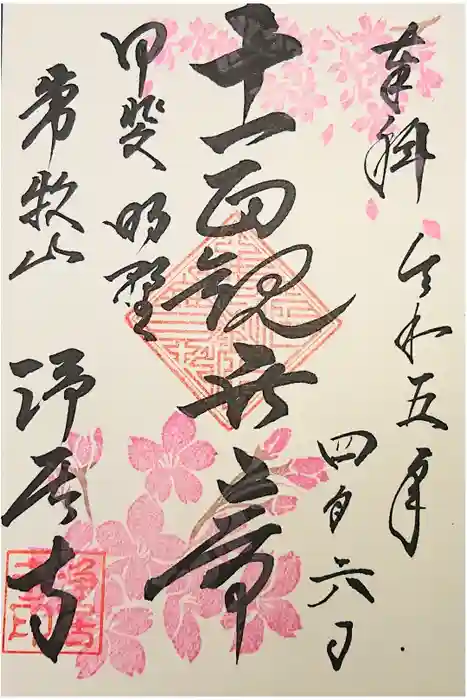 奉拝
令和五年
四月六日
十一面観世音
甲斐 明野
常牧山
浄居寺